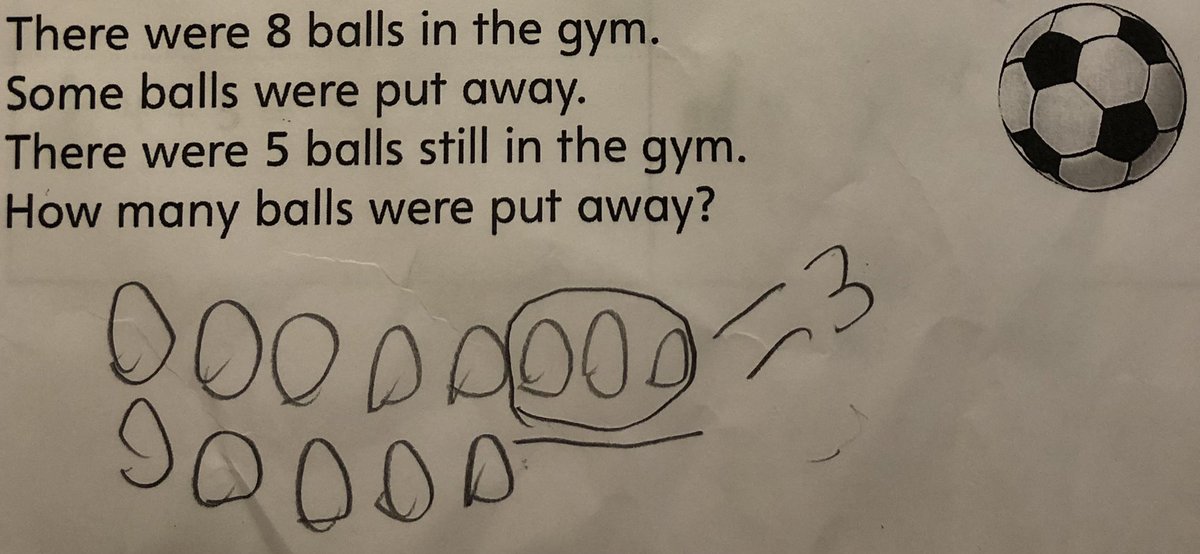 There were 8 balls in the gym.
Some balls were put away.
There were 5 balls still in the gym.
How many balls were put away?
= 3